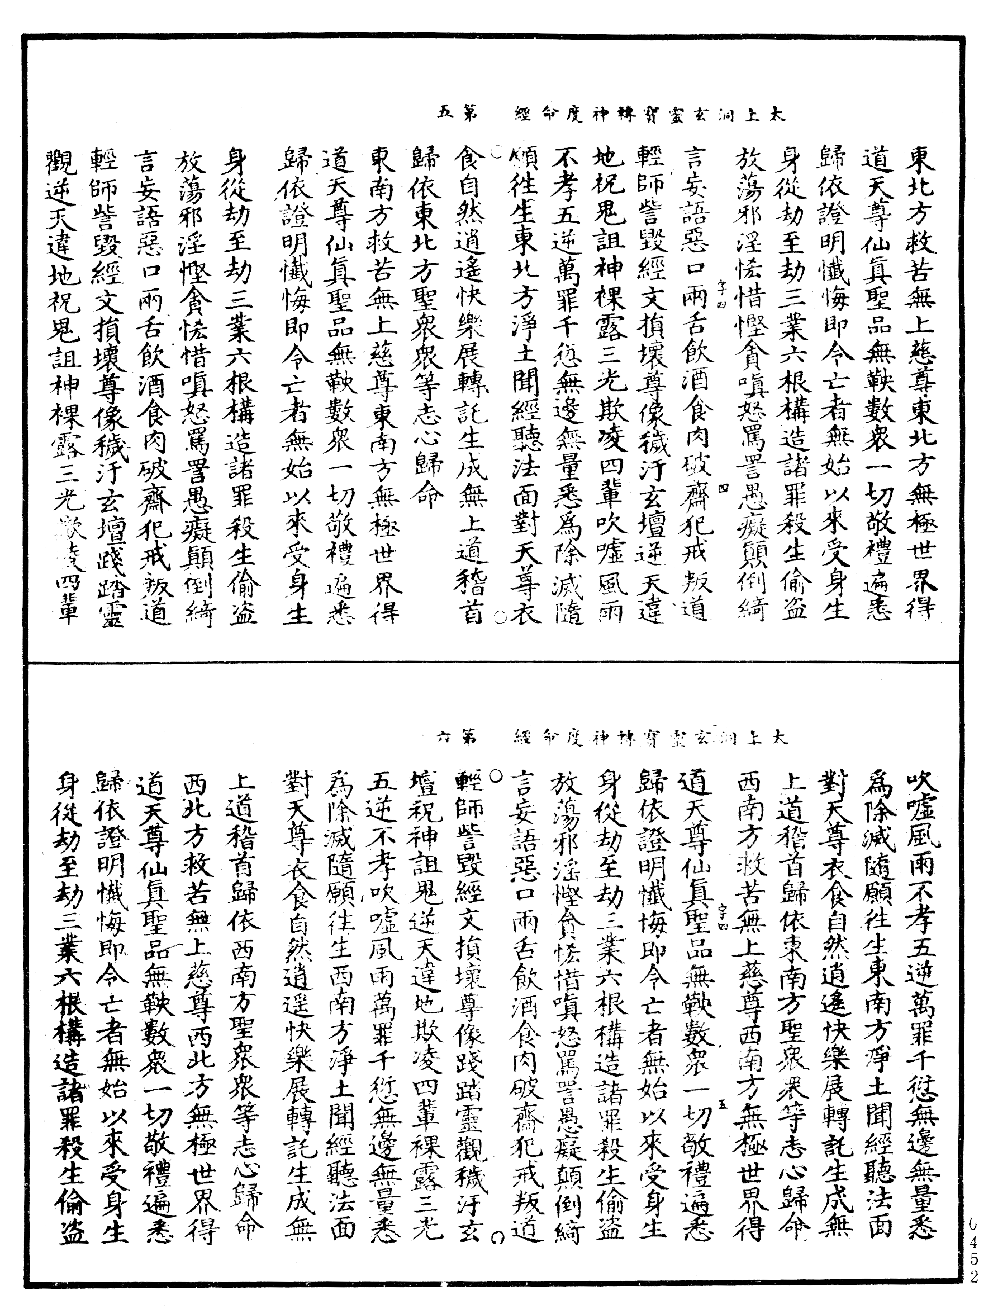 太上洞玄靈寶轉神度命經　第五
東北方救苦無上慈尊東北方無極世界得
道天尊仙眞聖品無鞅數衆一切敬禮遍悉
歸依證明懺悔即令亡者無始以來受身生
身從劫至劫三業六根構造諸罪殺生偷盜
放蕩邪淫恡惜慳貪嗔怒罵詈愚癡顛倒綺
字四　四
言妄語惡口兩舌飲酒食肉破齋犯戒叛道
輕師訾毀經文損壞尊像穢汙玄壇逆天違
地祝鬼詛神裸露三光欺凌四輩吹噓風雨
不孝五逆萬罪千愆無邊無量悉爲除滅隨
願往生東北方淨土聞經聽法面對天尊衣
食自然逍遙快樂展轉託生成無上道稽首
歸依東北方聖衆衆等志心歸命
東南方救苦無上慈尊東南方無極世界得
道天尊仙眞聖品無鞅數衆一切敬禮遍悉
歸依證明懺悔即令亡者無始以來受身生
身從劫至劫三業六根構造諸罪殺生偷盜
放蕩邪淫慳貪恡惜嗔怒罵詈愚癡顛倒綺
言妄語惡口兩舌飲酒食肉破齋犯戒叛道
輕師訾毀經文損壞尊像穢汙玄壇踐踏靈
觀逆天違地祝鬼詛神裸露三光欺凌四輩
太上洞玄靈寶轉神度命經　第六
吹噓風雨不孝五逆萬罪千愆無邊無量悉
爲除滅隨願往生東南方淨土聞經聽法面
對天尊衣食自然逍遙快樂展轉託生成無
上道稽首歸依東南方聖衆衆等志心歸命
西南方救苦無上慈尊西南方無極世界得
字四　五
道天尊仙眞聖品無鞅數衆一切敬禮遍悉
歸依證明懺悔即令亡者無始以來受身生
身從劫至劫三業六根構造諸罪殺生偷盜
放蕩邪淫慳貪恡惜嗔怒罵詈愚癡顛倒綺
言妄語惡口兩舌飲酒食肉破齋犯戒叛道
輕師訾毀經文損壞尊像踐踏靈觀穢汙玄
壇祝神詛鬼逆天違地欺凌四輩裸露三光
五逆不孝吹噓風雨萬罪千愆無邊無量悉
爲除滅隨願往生西南方淨土聞經聽法面
對天尊衣食自然逍遙快樂展轉託生成無
上道稽首歸依西南方聖衆衆等志心歸命
西北方救苦無上慈尊西北方無極世界得
道天尊仙眞聖品無鞅數衆一切敬禮遍悉
歸依證明懺悔即令亡者無始以來受身生
身從劫至劫三業六根構造諸罪殺生偷盜
0452